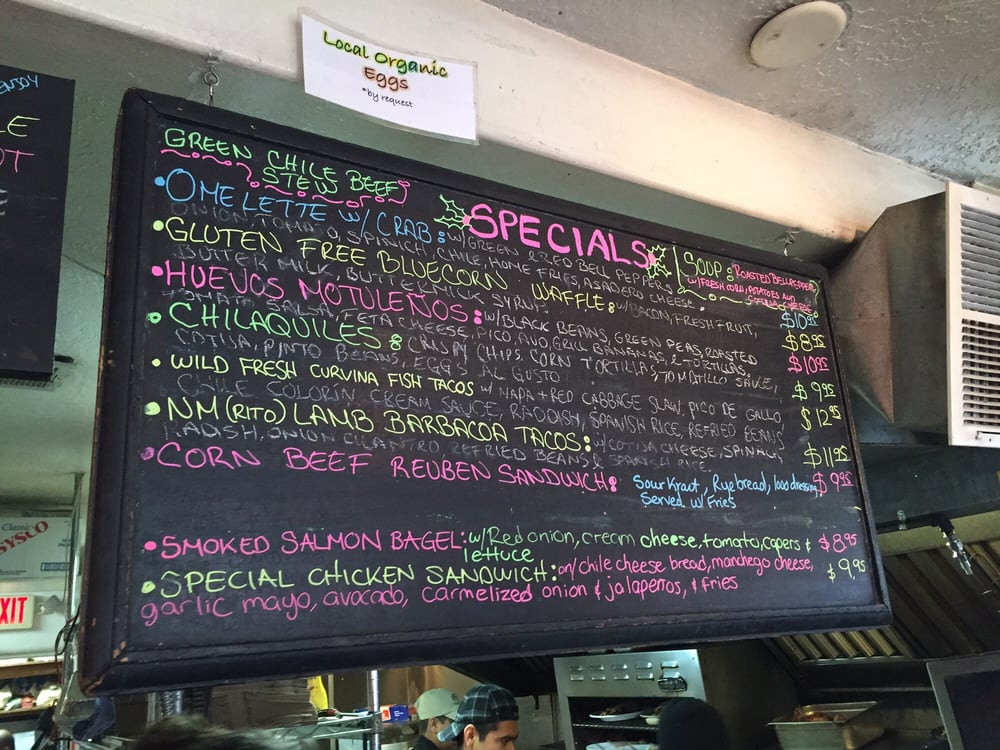 ENJOY
Local Organic
Eggs
*by request
GREEN CHILE
STEW BEEF
SPECIALS
SOUP: ROASTED BELL PEPPER
W/FRESH CORN, POTATOES AND
COTIJA CHEESE
•OMELETTE w/ CRAB: w/GREEN & RED BELL PEPPERS $10.95
ONION, TOMATO, SPINICH, CHILE, HOME FRIES, ASADERO CHEESE
•GLUTEN FREE BLUECORN WAFFLE: w/BACON, FRESH FRUIT, $8.95
BUTTER MILK, BUTTERMILK SYRUP.
•HUEVOS MOTULEÑOS: w/BLACK BEANS, GREEN PEAS, ROASTED $10.95
TOMATO SALSA, FETA CHEESE, PICO, AVO, GRILL BANANAS, 2-TORTILLAS,
•CHILAQUILES: CRISPY CHIPS, CORN TORTILLAS, TOMITILLO SAUCE, $9.95
COTIJA, PINTO BEANS, EGGS AL GUSTO
•WILD FRESH CURVINA FISH TACOS w/ NAPA + RED CABBAGE SLAW, PICO DE GALLO, $12.95
CHILE COLORIN CREAM SAUCE, RADDISH, SPANISH RICE, REFRIED BEANS
•NM (RITO) LAMB BARBACOA TACOS: w/COTIJA CHEESE, SPINALI, $11.95
RADISH, ONION CILANTRO, REFRIED BEANS & SPANISH RICE.
•CORN BEEF REUBEN SANDWICH: Sour Kraut, Rye bread, 1000 dressing $9.95
Served w/ Fries
•SMOKED SALMON BAGEL: w/Red onion, cream cheese, tomato, capers & $8.95
lettuce
•SPECIAL CHICKEN SANDWICH: on/chile cheese bread, manchego cheese, $9.95
garlic mayo, avocado, carmelized onion & jalapeños, & fries
Classic
SYSCO
EXIT